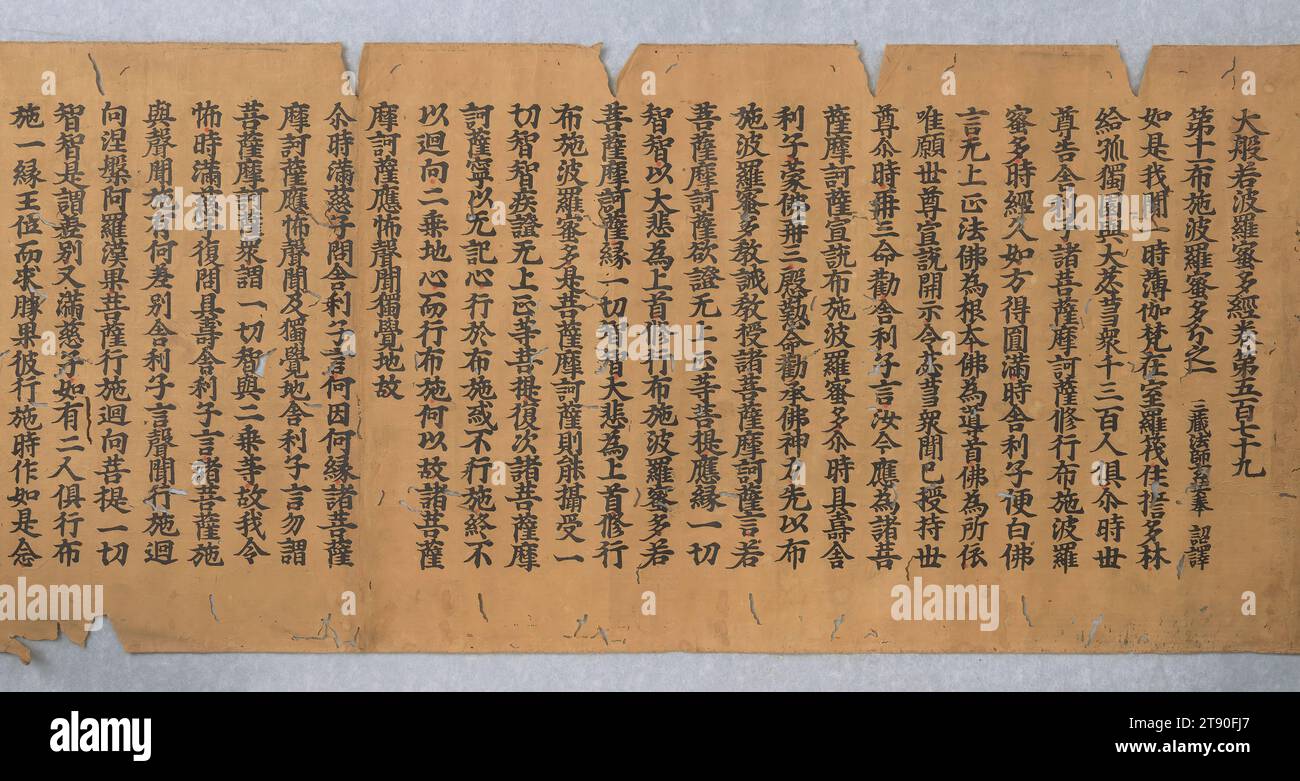 大般若波羅蜜多經卷第五百七十九
第十一布施波羅蜜多分之一 三藏法師玄奘奉 詔譯
如是我聞一時薄伽梵在室羅筏住誓多林
給孤獨園與大苾芻衆千二百人俱尒時世
尊告舍利子諸菩薩摩訶薩修行布施波羅
蜜多時經久如方得圓滿時舍利子便白佛
言无上正法佛為根本佛為導首佛為所依
唯願世尊宣說開示令苾芻衆聞已授持世
尊尒時再三命勸舍利子言汝今應為諸菩
薩摩訶薩宣說布施波羅蜜多尒時具壽舍
利子蒙佛再三殷勤命勸承佛神力先以布
施波羅蜜多教誡教授諸菩薩摩訶薩言若
菩薩摩訶薩欲證无上正等菩提應緣一切
智智以大悲為上首修行布施波羅蜜多若
菩薩摩訶薩緣一切智智大悲為上首修行
布施波羅蜜多是菩薩摩訶薩則能攝受一
切智智疾證无上正等菩提復次諸菩薩摩
訶薩寧以无記心行於布施或不行施終不
以迴向二乘地心而行布施何以故諸菩薩
摩訶薩應怖聲聞獨覺地故
尒時滿慈子問舍利子言何因何緣諸菩薩
摩訶薩應怖聲聞及獨覺地舍利子言勿謂
菩薩摩訶薩衆謂一切智與二乘等故我令
怖時滿慈子復問具壽舍利子言諸菩薩施
與聲聞施有何差別舍利子言聲聞行施迴
向涅槃阿羅漢果菩薩行施迴向菩提一切
智智是謂差別又滿慈子如有二人俱行布
施一緣王位而求勝果彼行施時作如是念
alamy
Image ID: 2T90FJ7
www.alamy.com